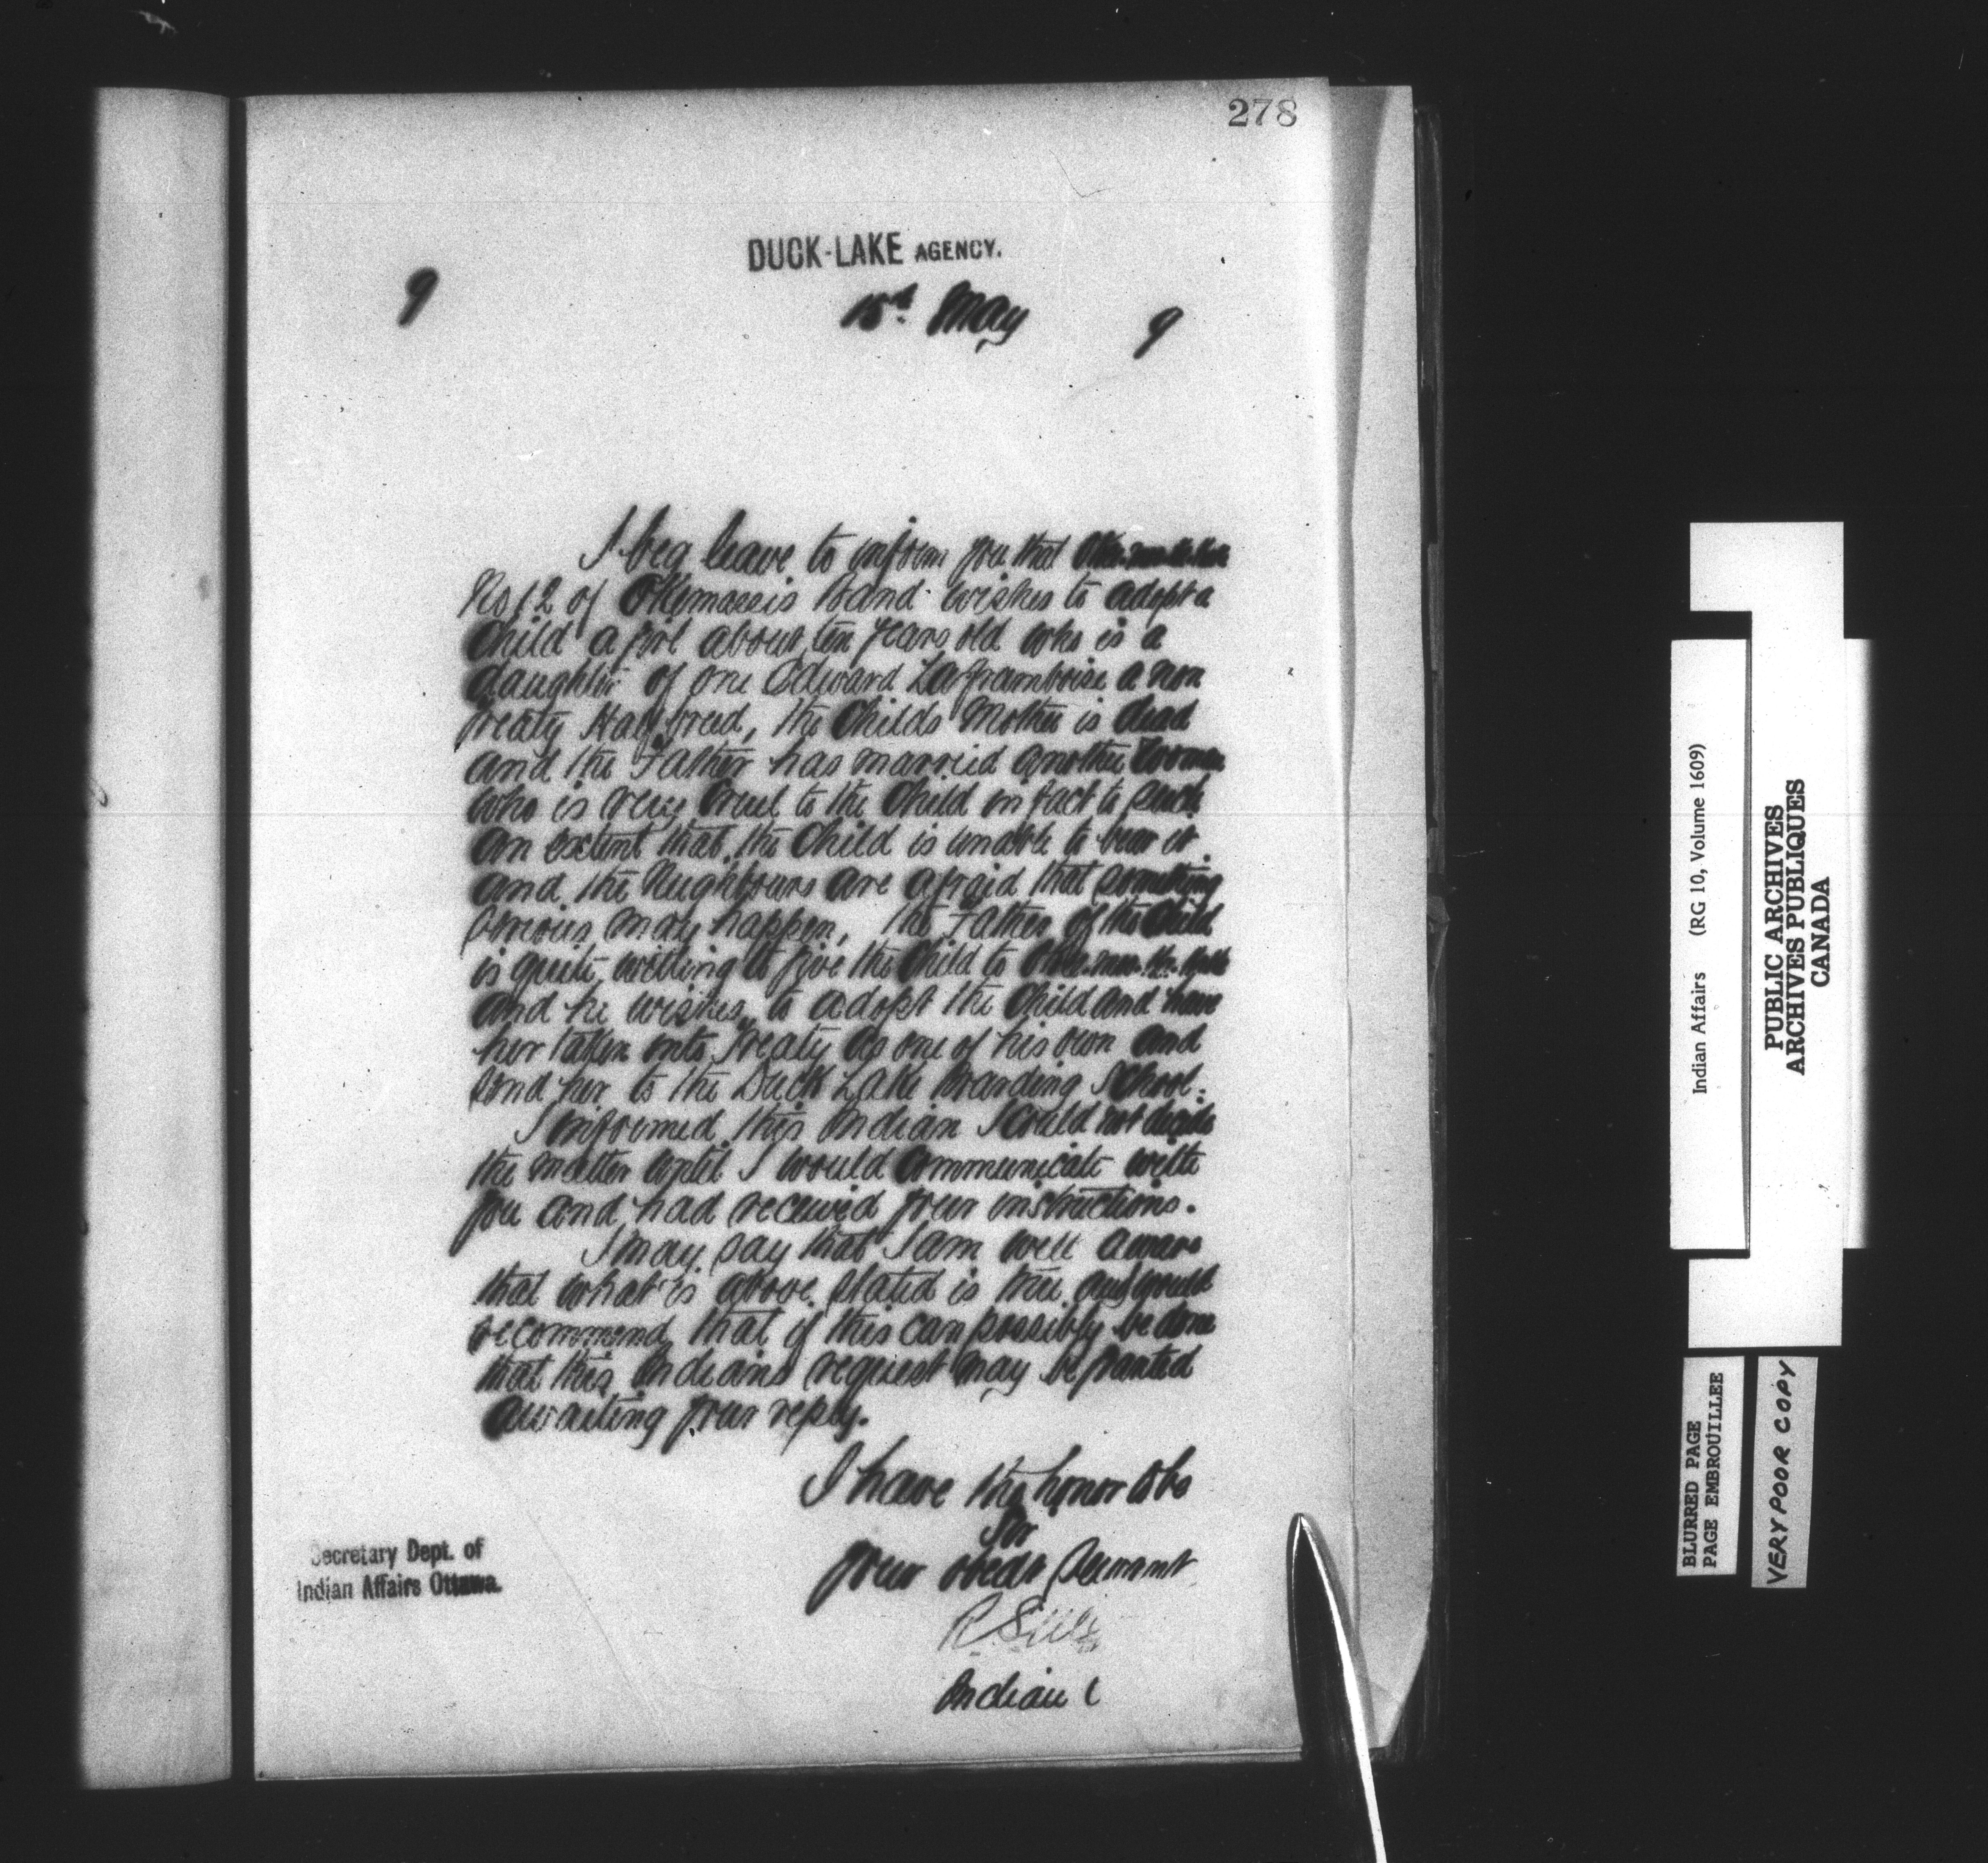 278
DUCK-LAKE AGENCY.
9
May 9
I beg leave to inform you that
No 12 of Okemassis Band wishes to adopt a
Child a girl about ten years old who is a
daughter of one Edward Laframboise a non
Treaty Halfbreed, the Childs Mother is dead
and the Father has married another Woman
who is very Cruel to the Child in fact to such
an extent that the Child is unable to bear it
and the Neighbours are afraid that something
serious may happen, the Father of the Child
is quite willing to give the Child to
and he wishes to adopt the Child and have
her taken into Treaty as one of his own and
send her to the Duck Lake Boarding School.
I informed this Indian I Could not decide
the matter until I would Communicate with
you and had received your instructions.
I may say that I am well aware
that what is above stated is true and would
recommend that if this can possibly be done
that this Indians request may be granted
awaiting your reply.
I have the honor to be
Sir
your obedt Servant
Indian
Secretary Dept. of
Indian Affairs Ottawa.
Indian Affairs (RG 10, Volume 1609)
PUBLIC ARCHIVES
ARCHIVES PUBLIQUES
CANADA
BLURRED PAGE
PAGE EMBROUILLEE
VERY POOR COPY